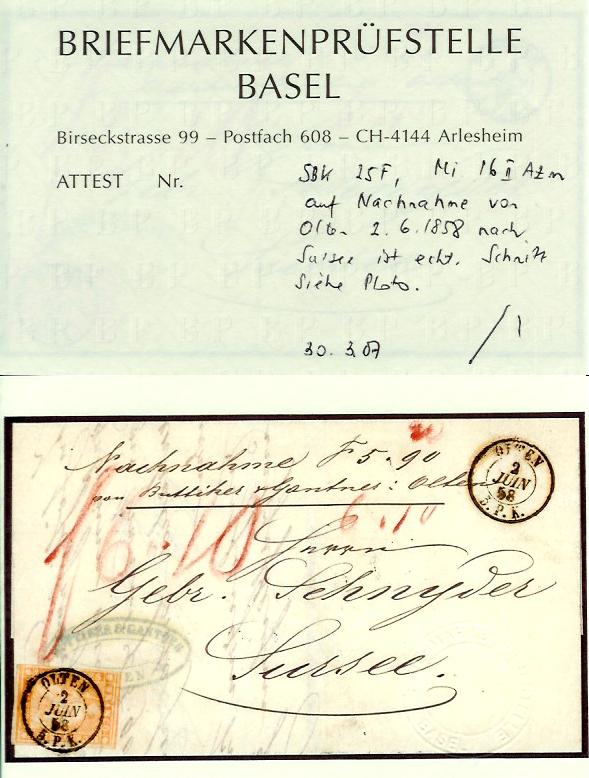 BRIEFMARKENPRÜFSTELLE
BASEL
Birseckstrasse 99 – Postfach 608 – CH-4144 Arlesheim
ATTEST Nr.
SBK 25F, Mi 16 II Azm
auf Nachnahme von
Olten 2.6.1858 nach
Sursee ist echt. Schnitt
siehe Photo.
30. 3. 07
Nachnahme F 5.90
von Buttiker & Gantner: Olten
6.10
6.10
OLTEN
2
JUIN
58
B.P.K.
Herrn
Gebr. Schnyder
Sursee.
& GANTNER
OLTEN
2
JUIN
58
B.P.K.